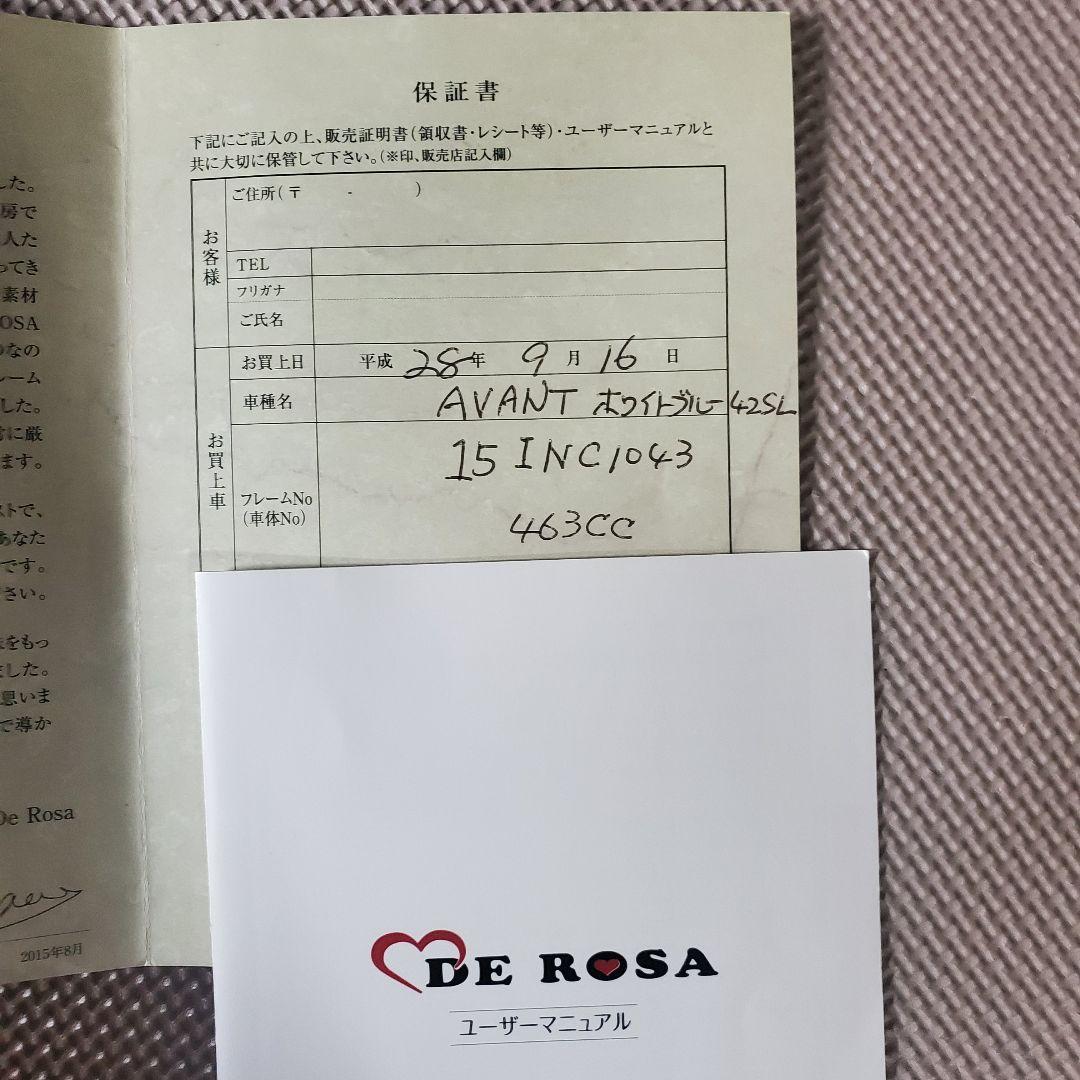 した。
房で
人た
ってき
素材
OSA
のなの
レーム
した。
常に厳
ます。
ストで、
あなた
です。
さい。
をもっ
ました。
思いま
で導か
De Rosa
2015年8月
保証書
下記にご記入の上、販売証明書(領収書・レシート等)・ユーザーマニュアルと
共に大切に保管して下さい。(※印、販売店記入欄)
お客様
ご住所(〒 - )
TEL
フリガナ
ご氏名
お買上車
お買上日 平成 28年 9月 16日
車種名 AVANT ホワイトブルー 42SL
フレームNo
(車体No)
15INC1043
463CC
DE ROSA
ユーザーマニュアル